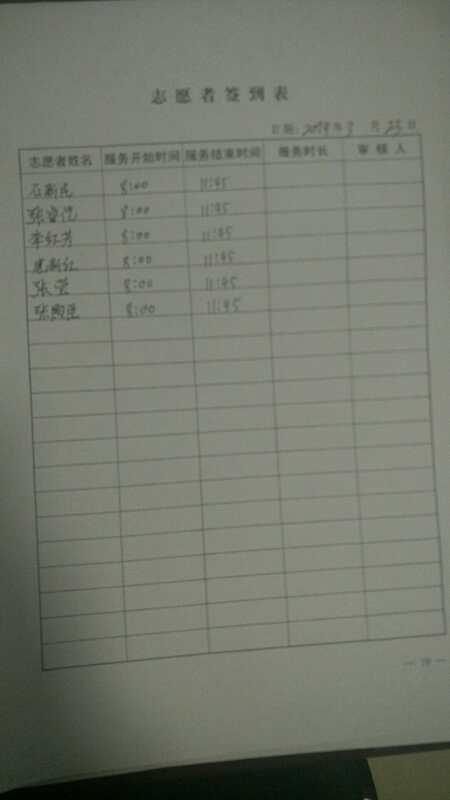 志愿者签到表
日期: 2019 年 3 月 23 日
志愿者姓名 服务开始时间 服务结束时间 服务时长 审核人
石新民 8:00 11:45
张 8:00 11:45
李红芳 8:00 11:45
新红 8:00 11:45
张莹 8:00 11:45
张 8:00 11:45